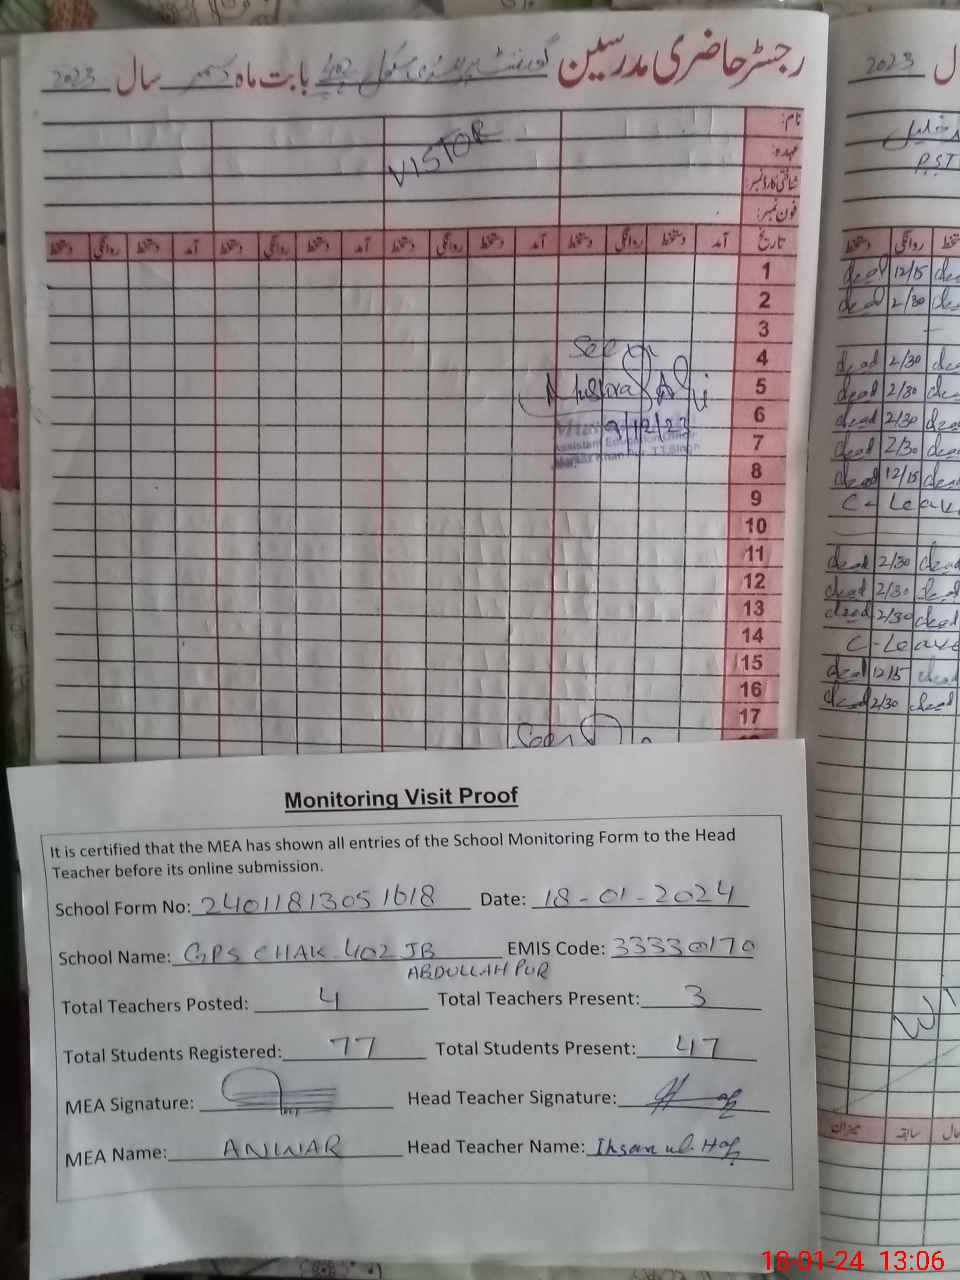 رجسٹر حاضری مدرسین گورنمنٹ پرائمری سکول 402 بابت ماہ دسمبر سال 2023
نام:
عہدہ:
شناختی کارڈ نمبر:
فون نمبر:
VISTOR
تاریخ آمد دستخط روانگی دستخط آمد دستخط روانگی دستخط آمد دستخط روانگی دستخط آمد دستخط روانگی دستخط
1
2
3
4
5
6
7
8
9
10
11
12
13
14
15
16
17
Seen
9/12/23
Assistant Education Officer
T.T.Singh
Seen
ل 2023
P.S.T
دستخط روانگی دستخط
12/15
2/30
2/30
2/30
2/30
2/30
12/15
C- Leave
2/30
2/30
2/30
C-Leave
12/15
2/30
میزان سابقہ حال
Monitoring Visit Proof
It is certified that the MEA has shown all entries of the School Monitoring Form to the Head
Teacher before its online submission.
School Form No: 2401181305 1618 Date: 18-01-2024
School Name: GPS CHAK 402 JB EMIS Code: 33330170
ABDULLAH PUR
Total Teachers Posted: 4 Total Teachers Present: 3
Total Students Registered: 77 Total Students Present: 47
MEA Signature: Head Teacher Signature:
MEA Name: ANWAR Head Teacher Name: Ihsan ul Haq
18-01-24 13:06